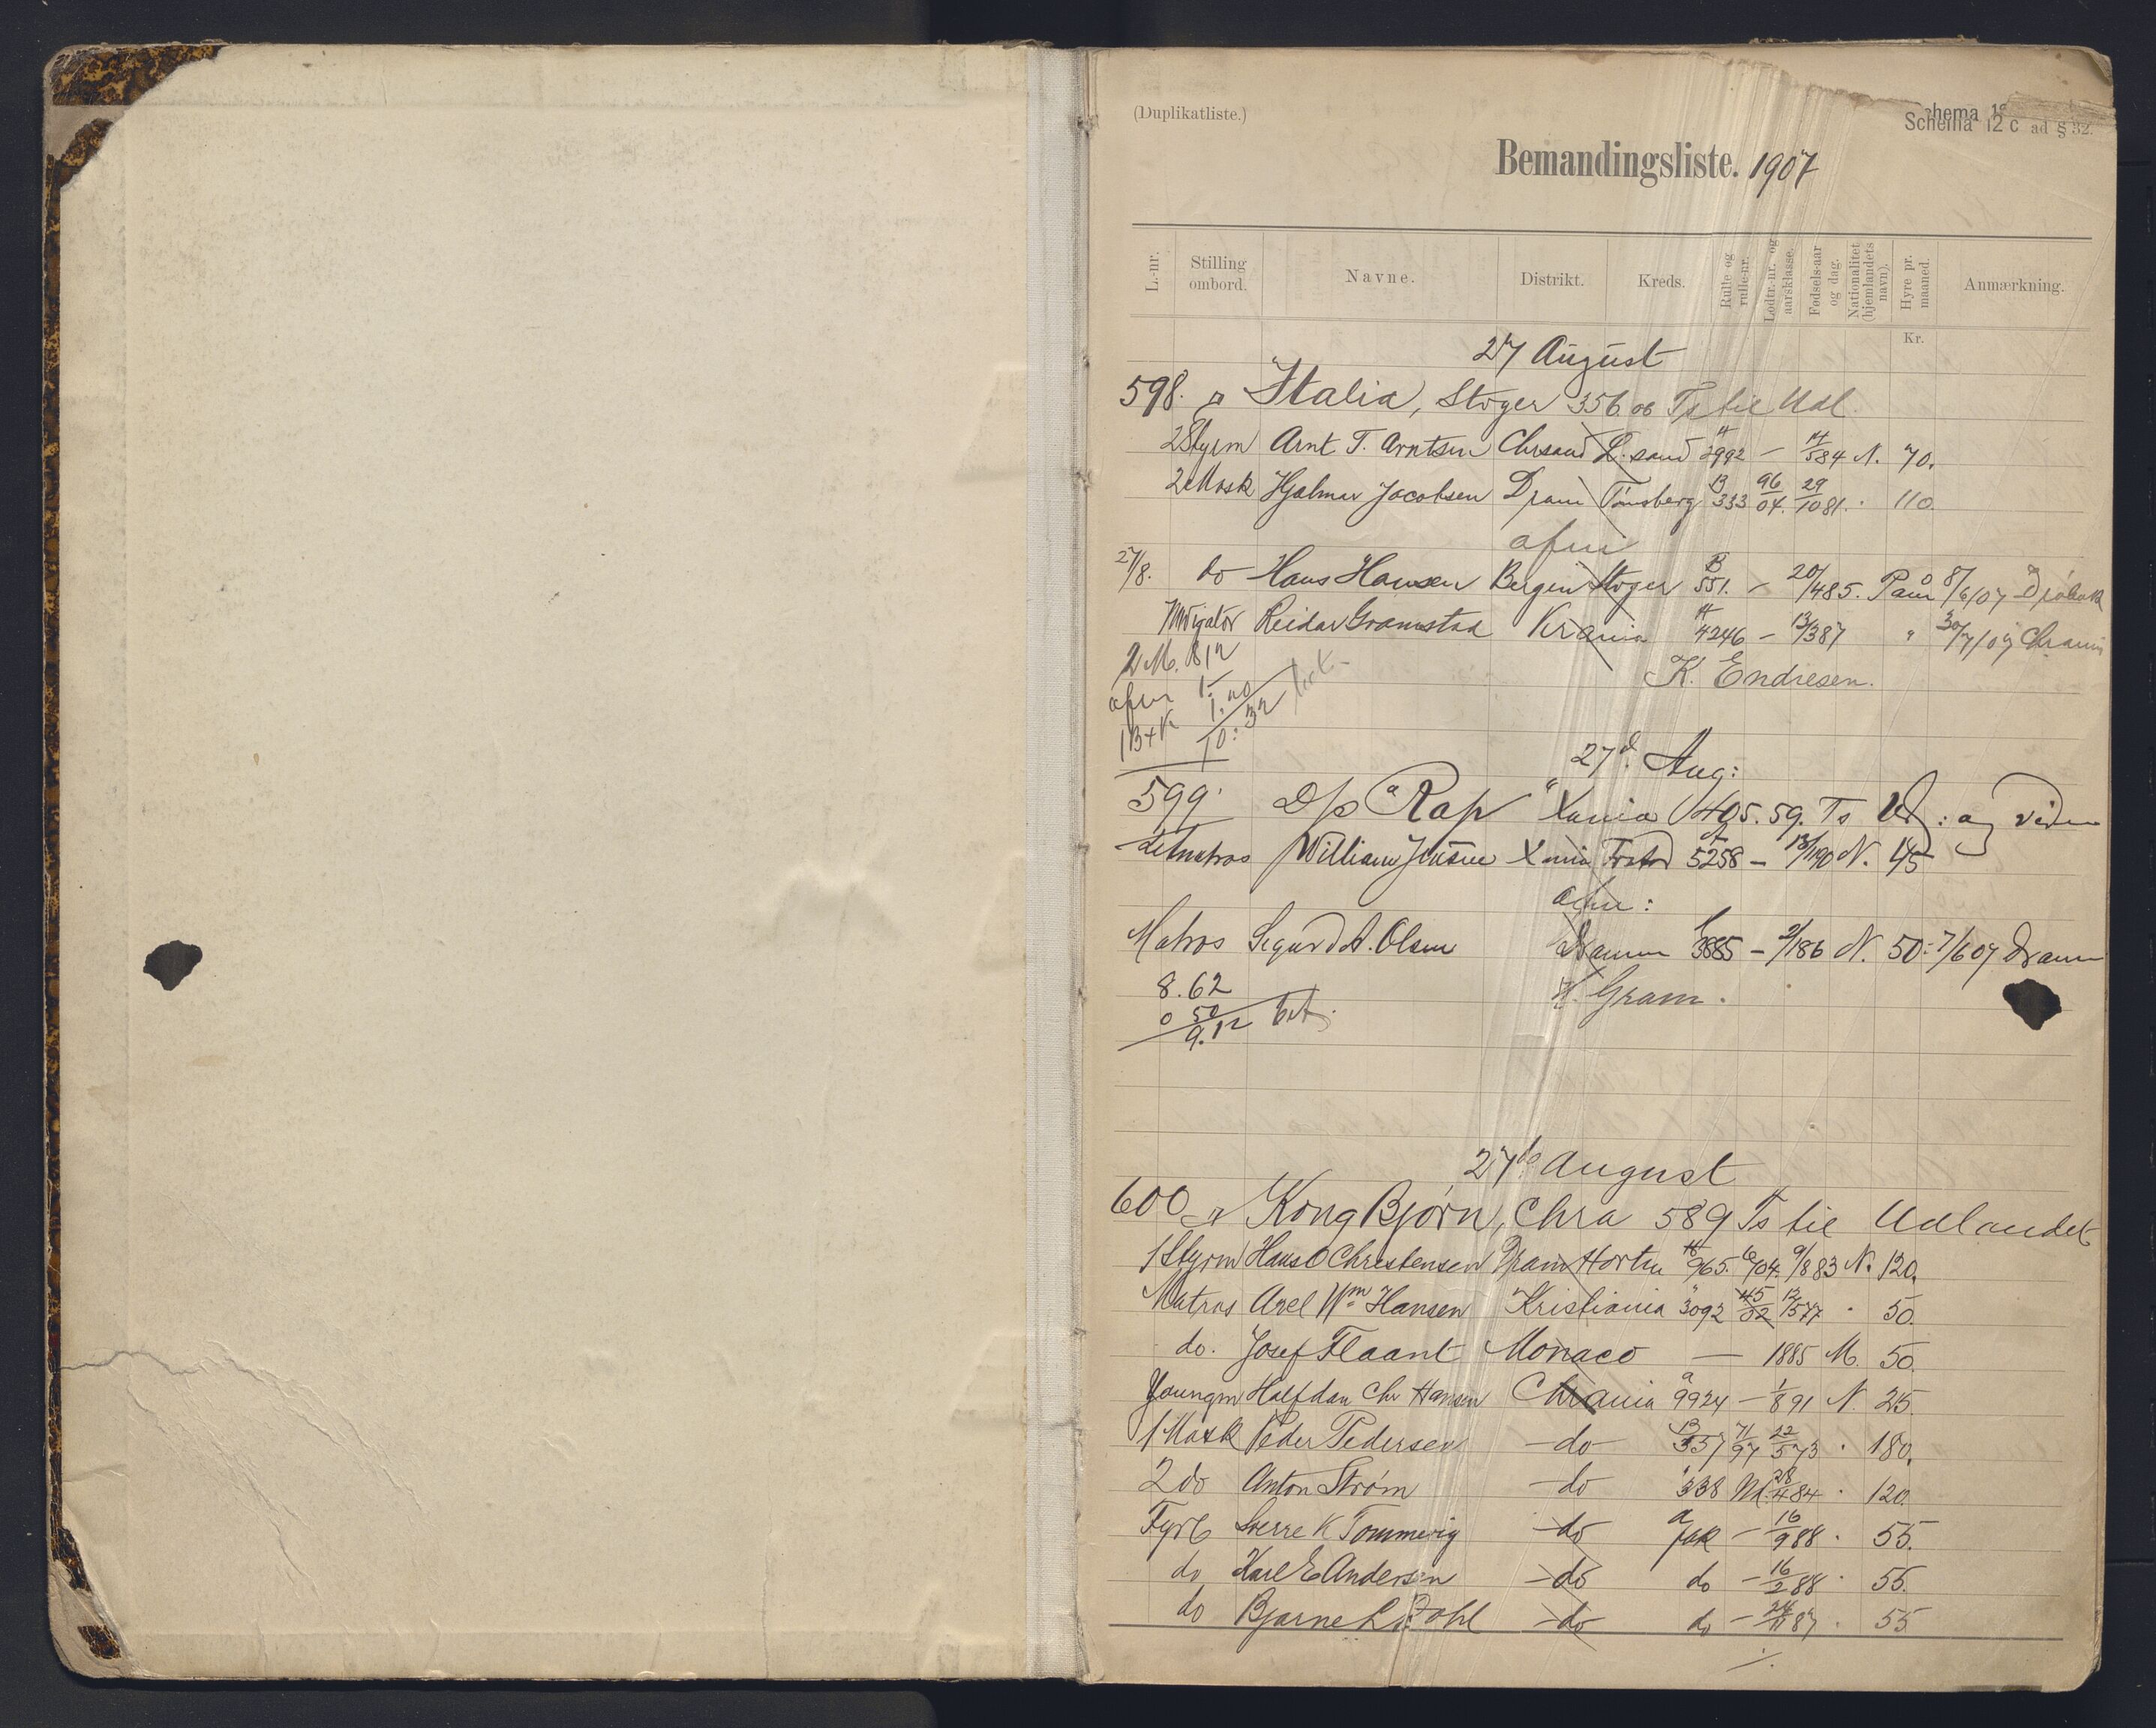 (Duplikatliste.)
Schema 12 c ad § 32.
Bemandingsliste. 1907
L.-nr. Stilling ombord. Navne. Distrikt. Kreds. Rulle og rulle-nr. Lodtr.-nr. og aarsklasse. Fødsels-aar og dag. Nationalitet (hjemlandets navn). Hyre pr. maaned. Anmærkning.
Kr.
27 August
598. Italia, Støger 356 Ts til Udl.
2 Styrm Arnt T. Arntsen Chrsand 2992 — 14/584 N. 70.
2 Mask Hjalmar Jacobsen Dram Tønsberg B 333 96/04. 29/1081. 110.
afm
27/8. do Hans Hansen Bergen Støger B 551. — 20/485. 8/6/07
Reidar Gramstad Krania 4246 — 13/387 " 30/7/07 Chrania
K. Endresen.
2 M. 8,12
afm 1.
10:32
27d. Aug:
599. D/s "Rap" Xania 405.59. Ts
Letmatros William Jensen Xania 5258 — 13/190 N. 45
afm:
Matros Sigurd A. Olsen Dramm 3885 — 2/186 N. 50. 7/6 07 Dramm
8.62 H. Gram.
0 50
9.12
27de August
600 Kong Bjørn, Chra 589 Ts til Udlandet
1 Styrm Hans O Christensen Dram Horten 965. 6/04. 9/883 N. 120.
Matros Axel Wm Hansen Kristiania 3092 45/02 12/577 50.
do. Josef Flaant Monaco — 1885 M. 50.
Youngm Halfdan Chr Hansen Chrania a 9924 — 1/891 N. 25.
1 Mask Peder Pedersen — do — B 357 71/97 22/573 180.
2 do Anton Strøm — do 338 28/484 120.
Fyrb Sverre K Tommerig — do a — 16/988 55.
do Karl E Andersen — do do — 16/288 55.
do Bjarne L. Dohl — do do — 24/1187 55